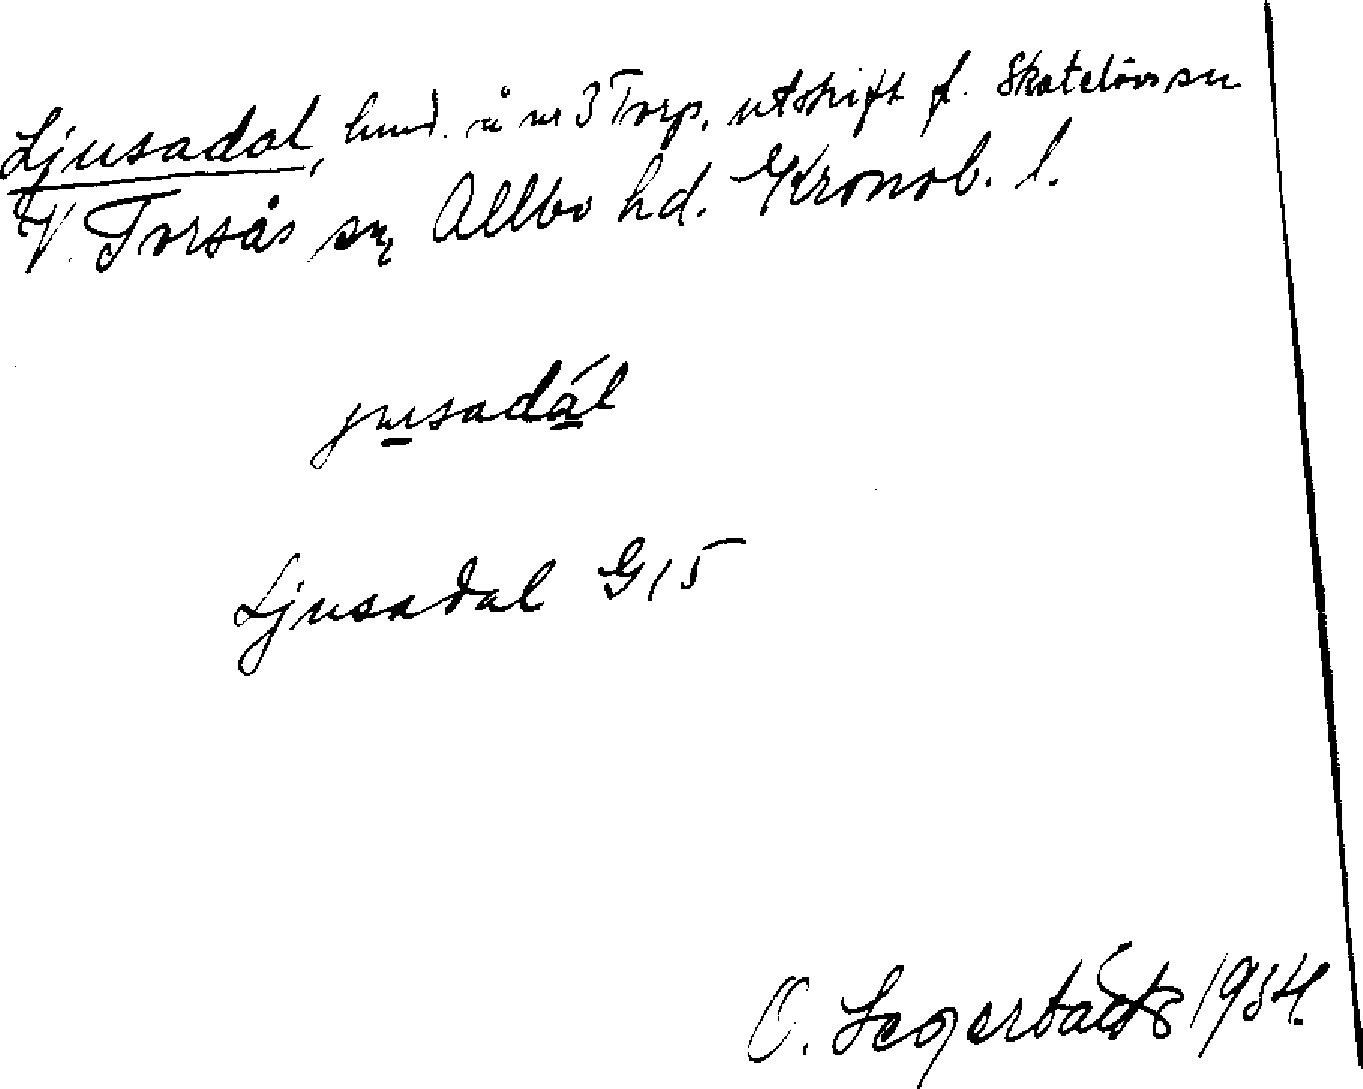 Ljusadal, lund. å nr 3 Torp, utskift f. Skatelövs sn
V. Torsås sn, Allbo hd. Kronob. l.
jusadál
Ljusadal G15
O. Segerbäck 1934.